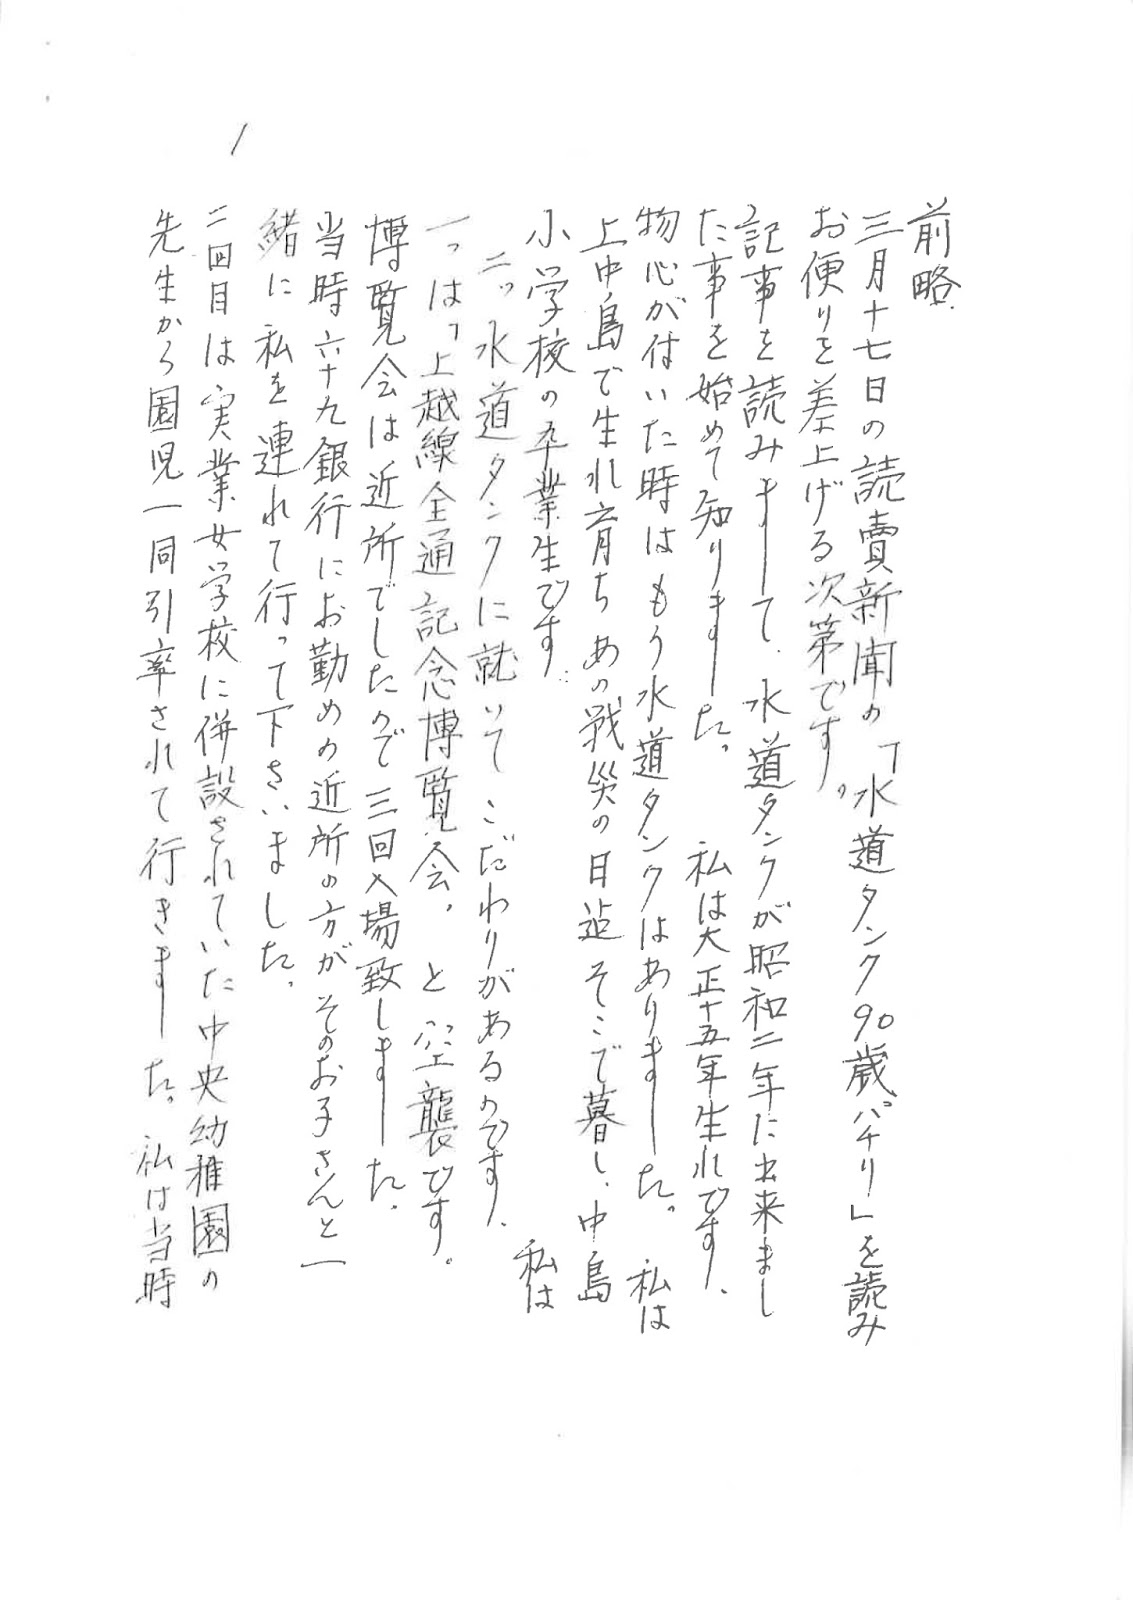 1
前略
三月十七日の読賣新聞の「水道タンク90歳パチリ」を読み
お便りを差上げる次第です。
記事を読みまして、水道タンクが昭和二年に出来まし
た事を始めて知りました。 私は大正十五年生れです、
物心が付いた時はもう水道タンクはありました。 私は
上中島で生れ育ちあの戦災の日迠そこで暮し、中島
小学校の卒業生です。 私は
二ッ水道タンクに就いてこだわりがあるのです、
一つは「上越線全通記念博覧会」と空襲です。
博覧会は近所でしたので三回入場致しました、
当時六十九銀行にお勤めの近所の方がそのお子さんと一
緒に私を連れて行って下さいました。
二回目は実業女学校に併設されていた中央幼稚園の
先生から園児一同引率されて行きました。 私は当時